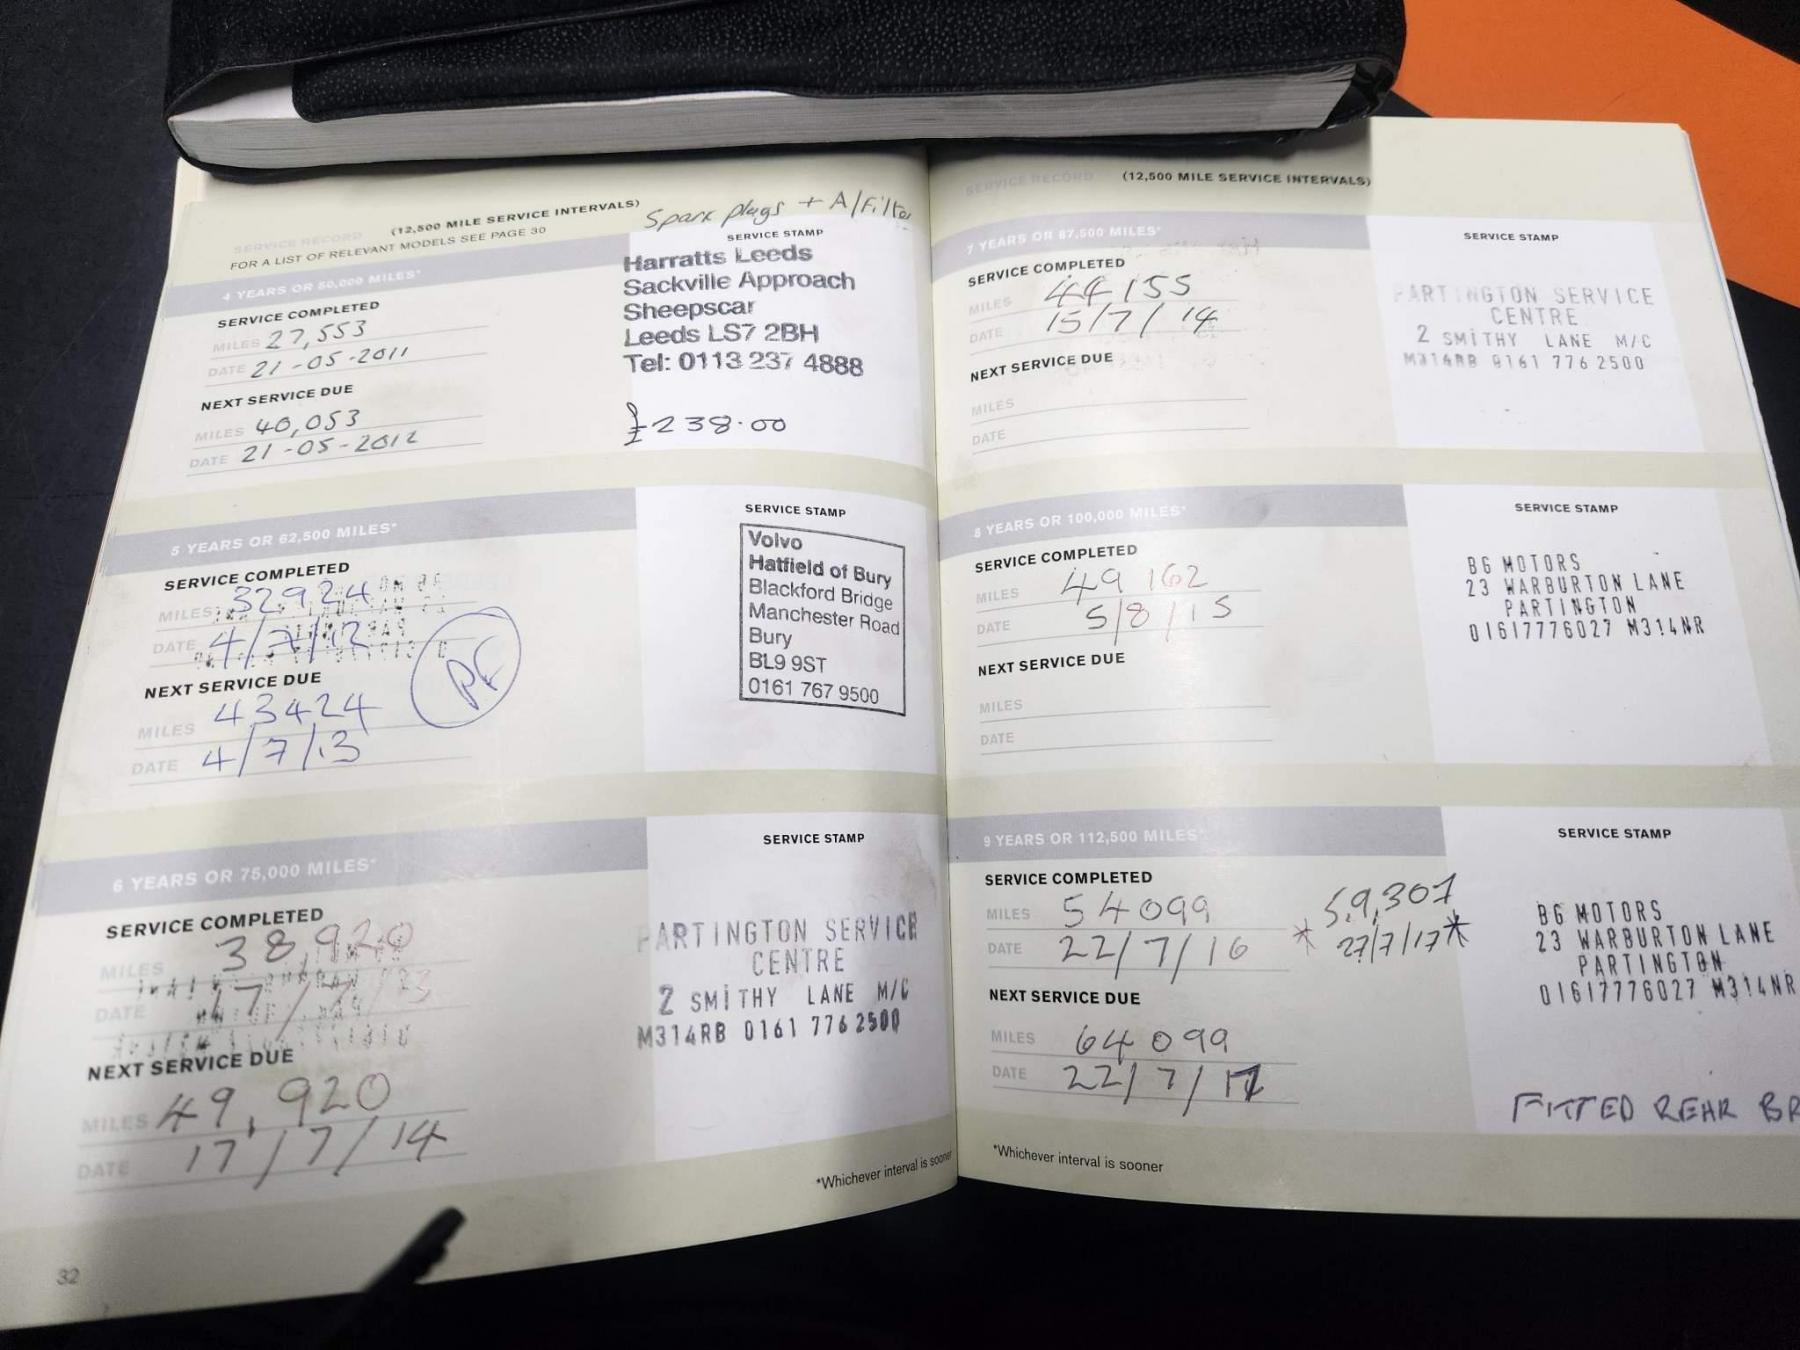 SERVICE RECORD (12,500 MILE SERVICE INTERVALS)
FOR A LIST OF RELEVANT MODELS SEE PAGE 30
Spark plugs + A/Filter
4 YEARS OR 50,000 MILES*
SERVICE COMPLETED
MILES 27,553
DATE 21-05-2011
NEXT SERVICE DUE
MILES 40,053
DATE 21-05-2012
SERVICE STAMP
Harratts Leeds
Sackville Approach
Sheepscar
Leeds LS7 2BH
Tel: 0113 237 4888
£238.00
5 YEARS OR 62,500 MILES*
SERVICE COMPLETED
MILES 32924
DATE 4/7/12
NEXT SERVICE DUE
MILES 43424
DATE 4/7/13
SERVICE STAMP
Volvo
Hatfield of Bury
Blackford Bridge
Manchester Road
Bury
BL9 9ST
0161 767 9500
6 YEARS OR 75,000 MILES*
SERVICE COMPLETED
MILES 38,920
DATE 17/7/
NEXT SERVICE DUE
MILES 49,920
DATE 17/7/14
SERVICE STAMP
PARTINGTON SERVICE
CENTRE
2 SMITHY LANE M/C
M314RB 0161 776 2500
*Whichever interval is sooner
32
SERVICE RECORD (12,500 MILE SERVICE INTERVALS)
7 YEARS OR 87,500 MILES*
SERVICE COMPLETED
MILES 44155
DATE 15/7/14
NEXT SERVICE DUE
MILES
DATE
SERVICE STAMP
PARTINGTON SERVICE
CENTRE
2 SMITHY LANE M/C
M314RB 0161 776 2500
8 YEARS OR 100,000 MILES*
SERVICE COMPLETED
MILES 49162
DATE 5/8/15
NEXT SERVICE DUE
MILES
DATE
SERVICE STAMP
BG MOTORS
23 WARBURTON LANE
PARTINGTON
01617776027 M314NR
9 YEARS OR 112,500 MILES*
SERVICE COMPLETED
MILES 54099
DATE 22/7/16
59,307
* 27/7/17 *
NEXT SERVICE DUE
MILES 64099
DATE 22/7/17
SERVICE STAMP
BG MOTORS
23 WARBURTON LANE
PARTINGTON
01617776027 M314NR
FITTED REAR BR
*Whichever interval is sooner